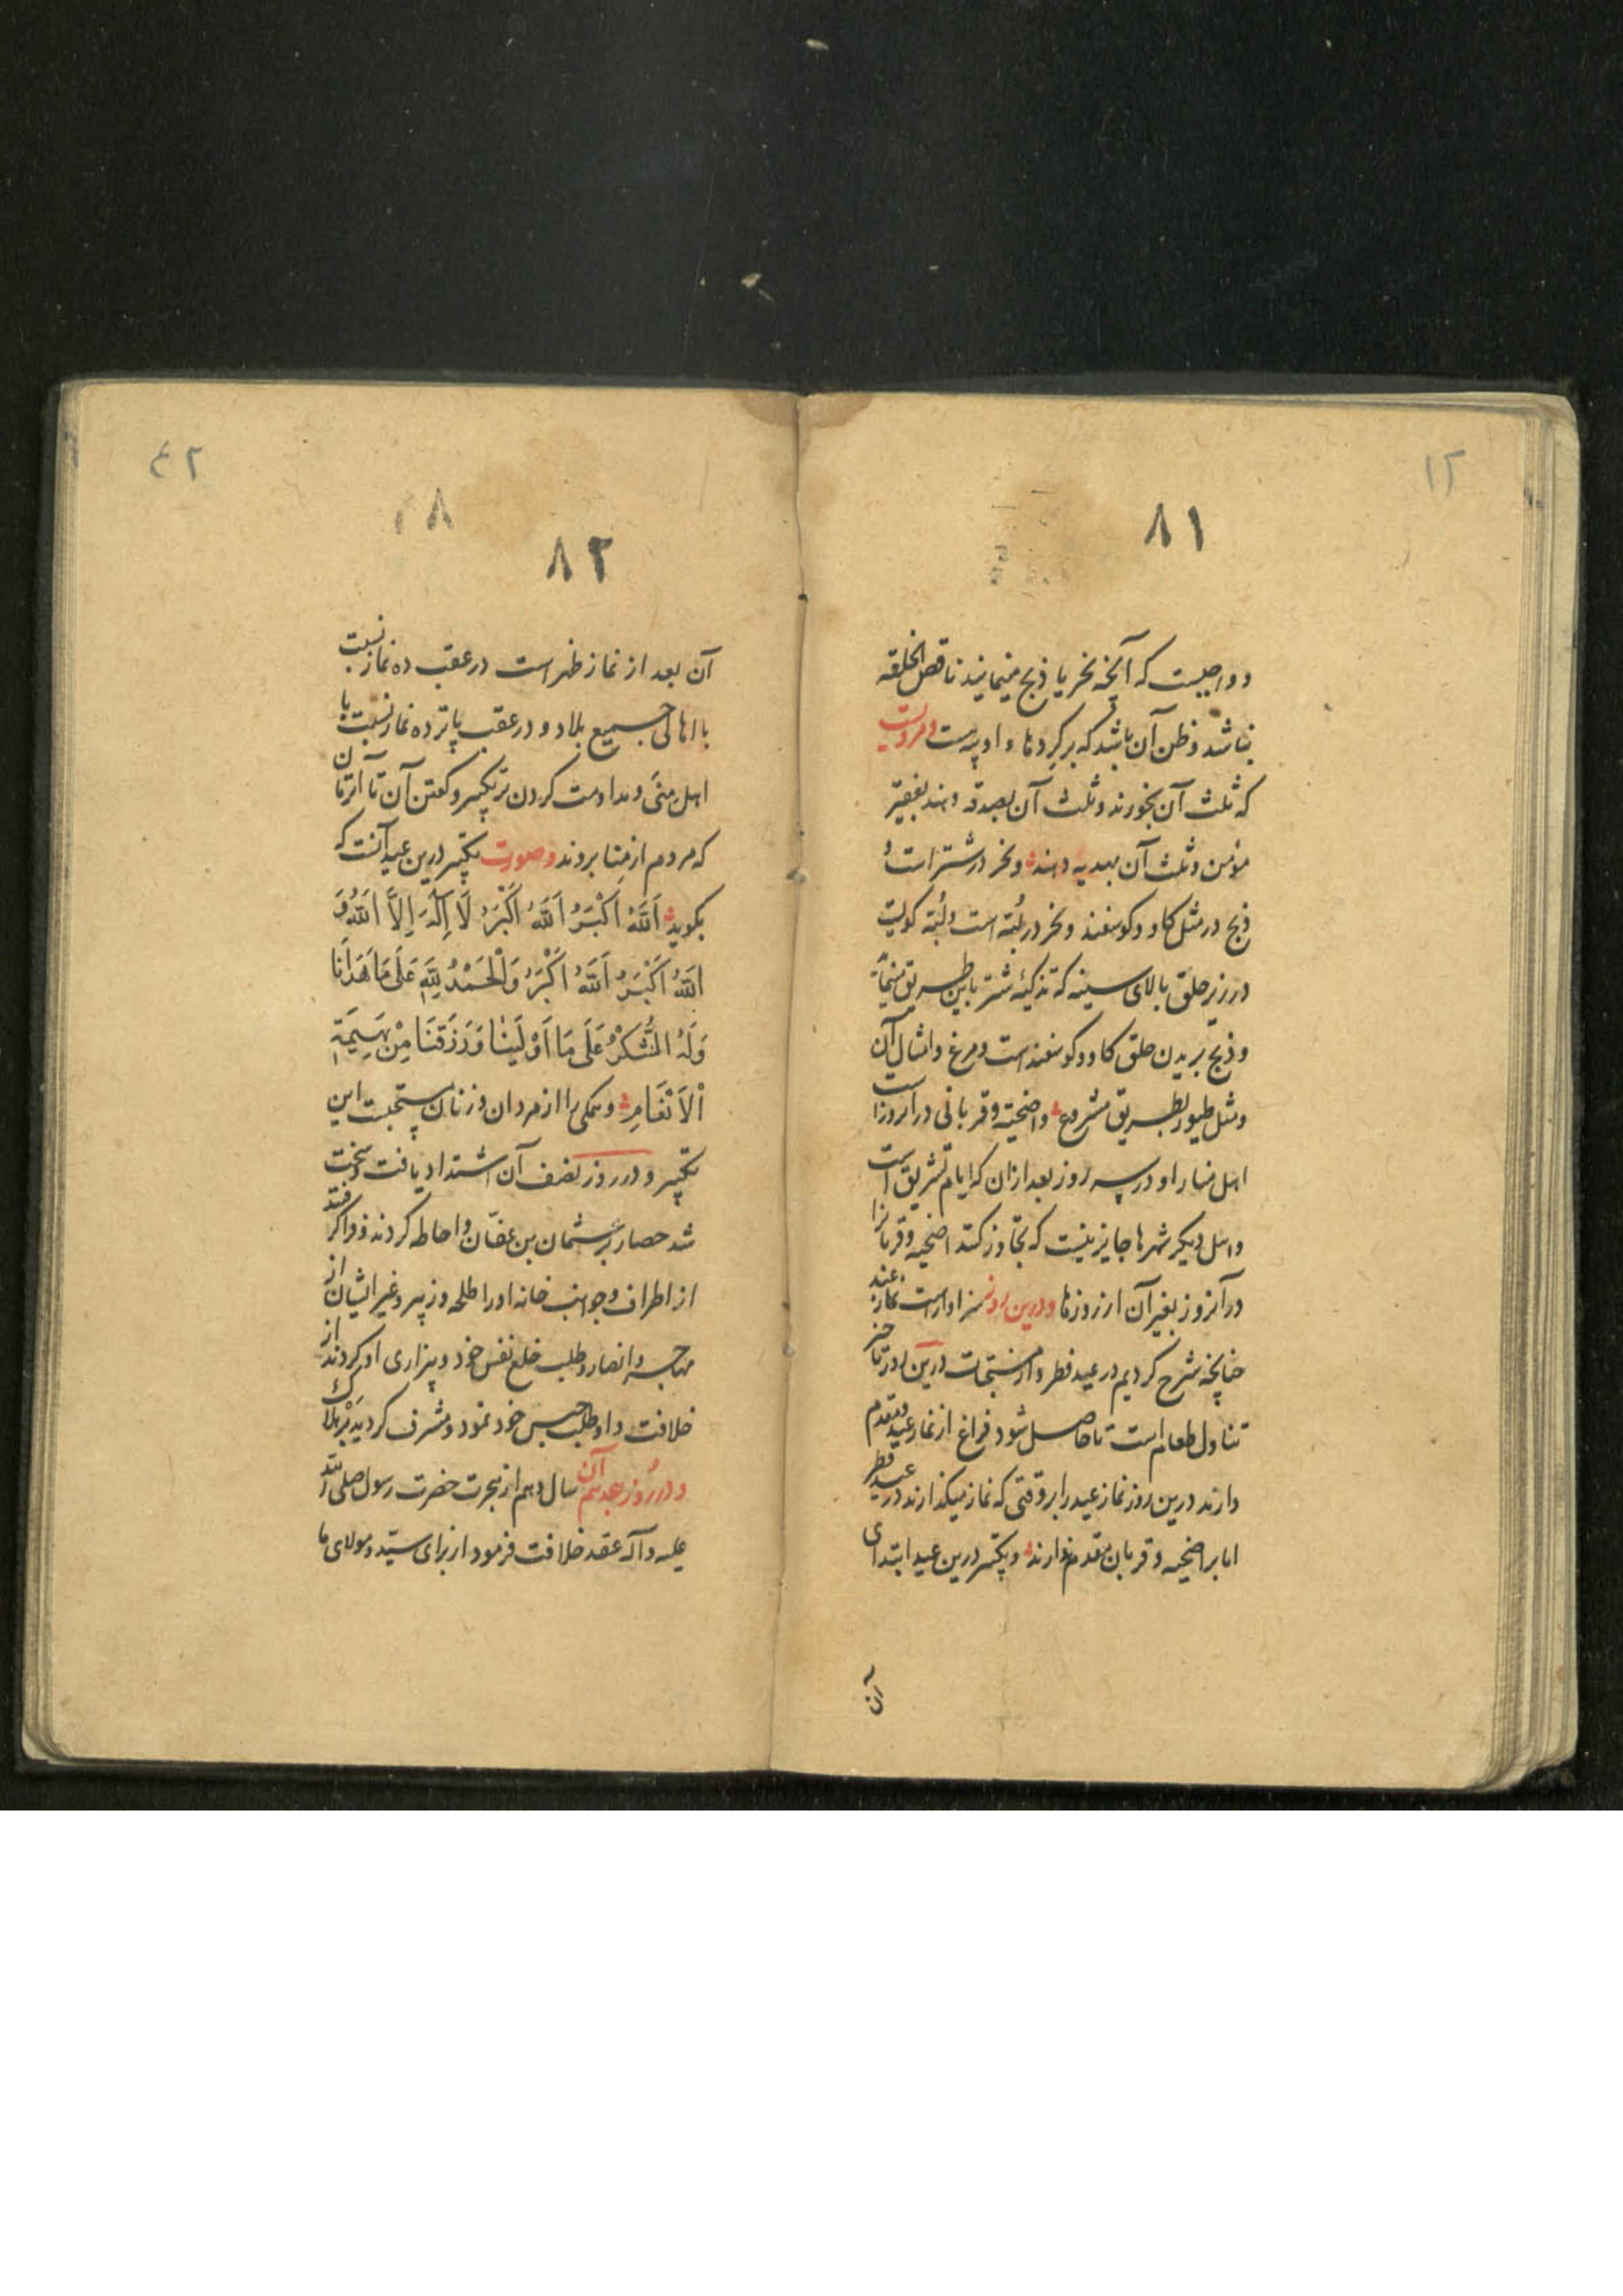 ۱۲
۸۱
و واجبست که آنچه نحر یا ذبح مینمایند ناقص الخلقه
نباشد و ظن آن باشد که بر گردها واو پیه است و مرویست
که ثلث آن بخورند و ثلث آن بصدقه دهند بفقیر
مؤمن و ثلث آن بهدیه دهند و نحر در شتر است و
ذبح در مثل کاو و کوسفند و نحر در لبّه است و لبّه کویست
در زیر حلق بالای سینه که تذکیه شتر باین طریق مینمایند
و ذبح بریدن حلق کاو و کوسفند است و مرغ و امثال آن
و مثل طیور بطریق مشروع و اضحیه و قربانی در آنروز است
اهل منا را و در سه روز بعد ازان که ایام تشریق است
و اهل دیکر شهرها جایز نیست که تجاوز کنند اضحیه و قربانرا
در آنروز بغیر آن از روزها و درین روز سزاوار است نماز عید
چنانچه شرح کردیم در عید فطر و از مستحبات درین روز تاخیر
تناول طعام است تا حاصل شود فراغ از نماز عید و مقدم
دارند درین روز نماز عید را بر وقتی که نماز میکذارند در عید فطر
اما بر اضحیه و قربان مقدم دارند و تکبیر درین عید ابتدای
آن
۴۲
۸۲
آن بعد از نماز ظهر است در عقب ده نماز نسبت
با اهالی جمیع بلاد و در عقب پانزده نماز نسبت با
اهل منی و مداومت کردن بر تکبیر و کفتن آن تا آن
که مردم از منا بروند و صورت تکبیر درین عید آنست که
بکوید اَللّهُ اَکْبَرُ اَللّهُ اَکْبَرُ لَا اِلٰهَ اِلَّا اللّهُ وَ
اَللّهُ اَکْبَرُ اَللّهُ اَکْبَرُ وَالْحَمْدُ لِلّهِ عَلَی مَا هَدَانَا
وَلَهُ الشُّکْرُ عَلَی مَا اَوْلَینَا وَرَزَقَنَا مِنْ بَهِیمَةِ
اْلاَنْعَامِ و همکی را از مردان و زنان مستحبست این
تکبیر و در روز نصف آن اشتداد یافت و سخت
شد حصار بر عثمان بن عفّان و احاطه کردند و فرا کرفتند
از اطراف و جوانب خانه او را طلحه و زبیر و غیر ایشان از
مهاجر و انصار و طلب خلع نفس خود و بیزاری او کردند از
خلافت و او طلب حبس خود نمود و مشرف کردید بر هلاک
و در روز هجدهم آن سال دهم از هجرت حضرت رسول صلی الله
علیه و آله عقد خلافت فرمود از برای سید و مولای ما